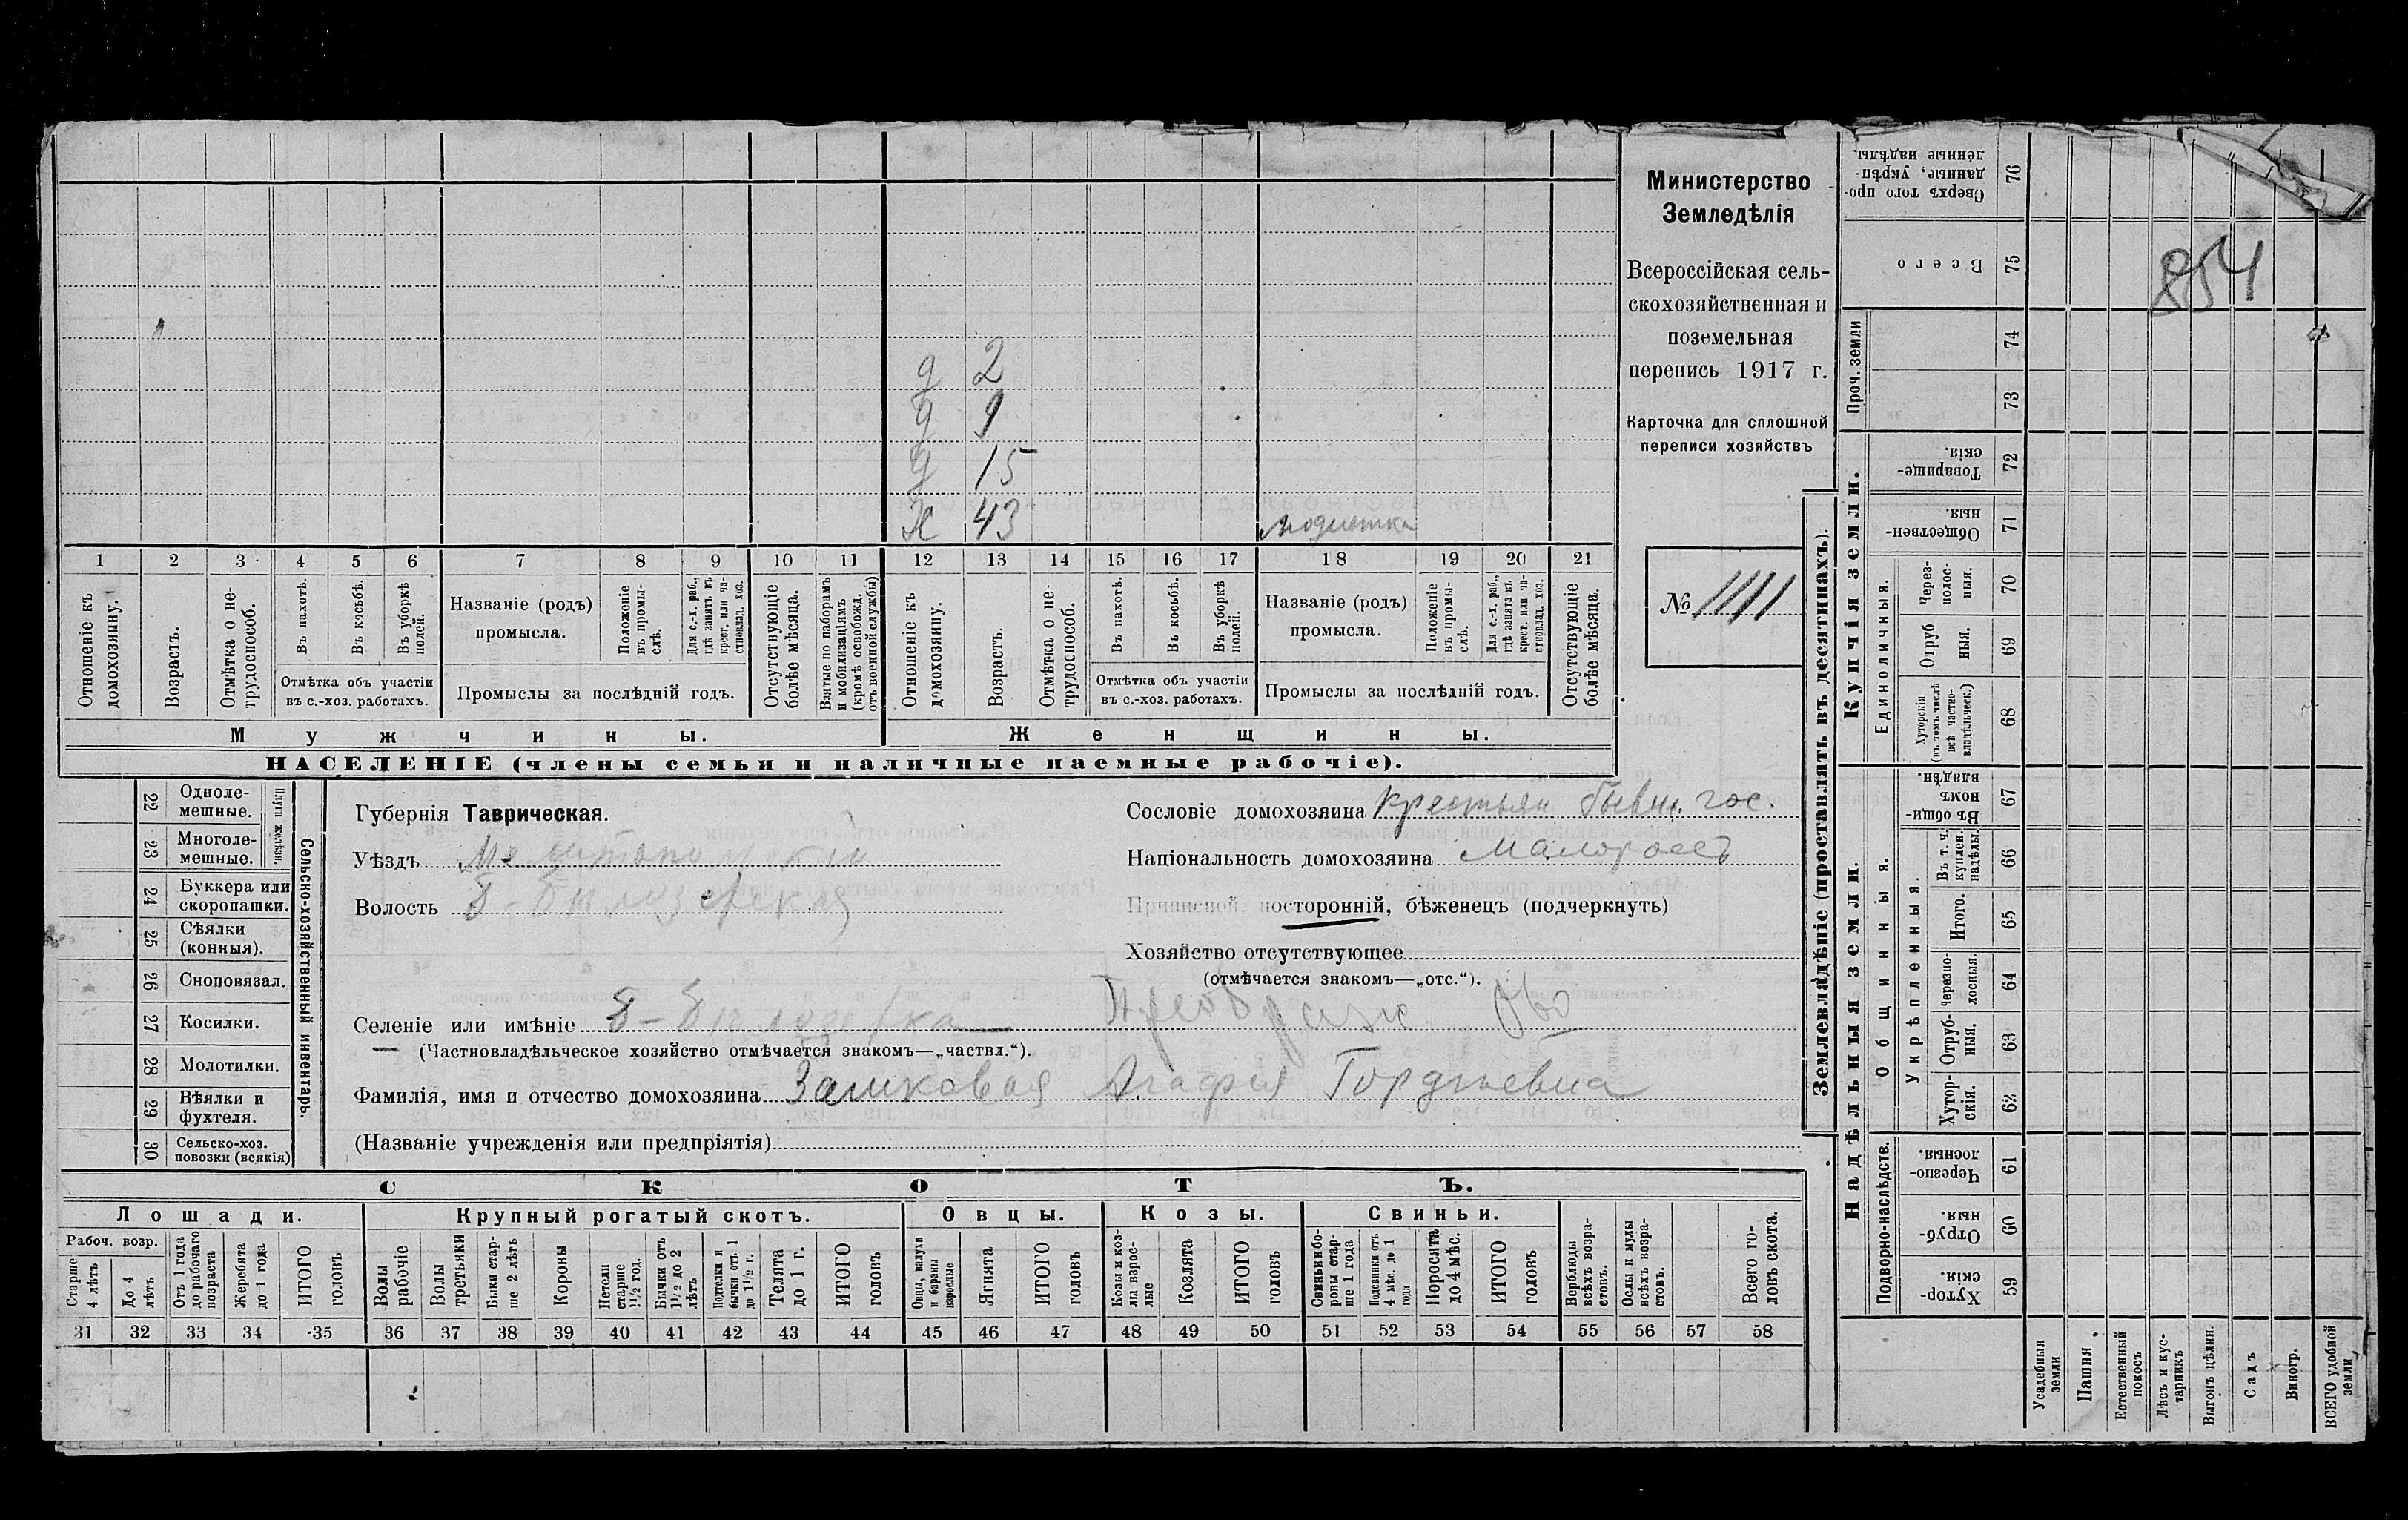 Министерство
Земледѣлія
Всероссійская сель-
скохозяйственная и
поземельная
перепись 1917 г.
Карточка для сплошной
переписи хозяйствъ
№ 1111
д 2
д 9
д 15
Х 43 модистка
1 2 3 4 5 6 7 8 9 10 11 12 13 14 15 16 17 18 19 20 21
Отношеніе къ домохозяину.
Возрастъ.
Отмѣтка о не-трудоспособ.
Въ пахотѣ.
Въ косьбѣ.
Въ уборкѣ полей.
Отмѣтка объ участіи
въ с.-хоз. работахъ.
Названіе (родъ)
промысла.
Положеніе въ промы-слѣ.
Для с.-х. раб., гдѣ занятъ въ крест. или ча-стновлад. хоз.
Промыслы за послѣдній годъ.
Отсутствующіе болѣе мѣсяца.
Взятые по наборамъ и мобилизаціямъ (кромѣ освобожд. отъ военной службы)
Отношеніе къ домохозяину.
Возрастъ.
Отмѣтка о не-трудоспособ.
Въ пахотѣ.
Въ косьбѣ.
Въ уборкѣ полей.
Отмѣтка объ участіи
въ с.-хоз. работахъ.
Названіе (родъ)
промысла.
Положеніе въ промы-слѣ.
Для с.-х. раб., гдѣ занята въ крест. или ча-стновлад. хоз.
Промыслы за послѣдній годъ.
Отсутствующіе болѣе мѣсяца.
Мужчины. Женщины.
НАСЕЛЕНІЕ (члены семьи и наличные наемные рабочіе).
22 Одноле-мешные.
23 Многоле-мешные.
Плуги желѣзн.
24 Буккера или скоропашки.
25 Сѣялки (конныя).
26 Сноповязал.
27 Косилки.
28 Молотилки.
29 Вѣялки и фухтеля.
30 Сельско-хоз. повозки (всякія)
Сельско-хозяйственный инвентарь.
Губернія Таврическая.
Уѣздъ Мелитопольскій
Волость Б-Бѣлозерская
Селеніе или имѣніе Б-Бѣлозерка
(Частновладѣльческое хозяйство отмѣчается знакомъ—„частвл.“).
Фамилія, имя и отчество домохозяина Замковая Агафия Гордѣевна
(Названіе учрежденія или предпріятія)
Сословіе домохозяина крестьян бывш. гос.
Національность домохозяина Малороссъ
Приписной, посторонній, бѣженецъ (подчеркнуть)
Хозяйство отсутствующее
(отмѣчается знакомъ—„отс.“).
СКОТЪ.
Лошади. Крупный рогатый скотъ. Овцы. Козы. Свиньи.
Рабоч. возр.
Старше 4 лѣтъ
До 4 лѣтъ
Отъ 1 года до рабочаго возраста
Жеребята до 1 года
ИТОГО головъ
Волы рабочіе
Волы третьяки
Быки стар-ше 2 лѣтъ
Коровы
Нетели старше 1½ год.
Бычки отъ 1½ до 2 лѣтъ
Подтелки и бычки отъ 1 до 1½ г.
Телята до 1 г.
ИТОГО головъ
Овцы, валухи и бараны взрослые
Ягнята
ИТОГО головъ
Козы и коз-лы взрос-лые
Козлята
ИТОГО головъ
Свиньи и бо-ровы стар-ше 1 года
Подсвинки отъ 4 мѣс. до 1 года
Поросята до 4 мѣс.
ИТОГО головъ
Верблюды всѣхъ возра-стовъ.
Ослы и мулы всѣхъ возра-стовъ.
Всего го-ловъ скота.
31 32 33 34 35 36 37 38 39 40 41 42 43 44 45 46 47 48 49 50 51 52 53 54 55 56 57 58
Землевладѣніе (проставлять въ десятинахъ).
854
Сверхъ того про-данные, укрѣп-ленные надѣлы. 76
Всего 75
Проч. земли 74
73
Купчія земли.
Товарище-скія. 72
Обществен-ныя. 71
Единоличныя.
Через-полос-ныя. 70
Отруб-ныя. 69
Хуторскія (въ томъ числѣ всѣ частно-владѣльческ.) 68
Надѣльныя земли.
Общинныя.
Въ общин-номъ владѣн. 67
Укрѣпленныя.
Въ т. ч. куплен. надѣлы. 66
Итого. 65
Черезпо-лосныя. 64
Отруб-ныя. 63
Хутор-скія. 62
Подворно-наслѣдств.
Черезпо-лосныя. 61
Отруб-ныя. 60
Хутор-скія. 59
Усадебныя земли
Пашня
Естественный покосъ
Лѣсъ и кус-тарникъ
Выгонъ цѣлин.
Садъ
Виногр.
ВСЕГО удобной земли